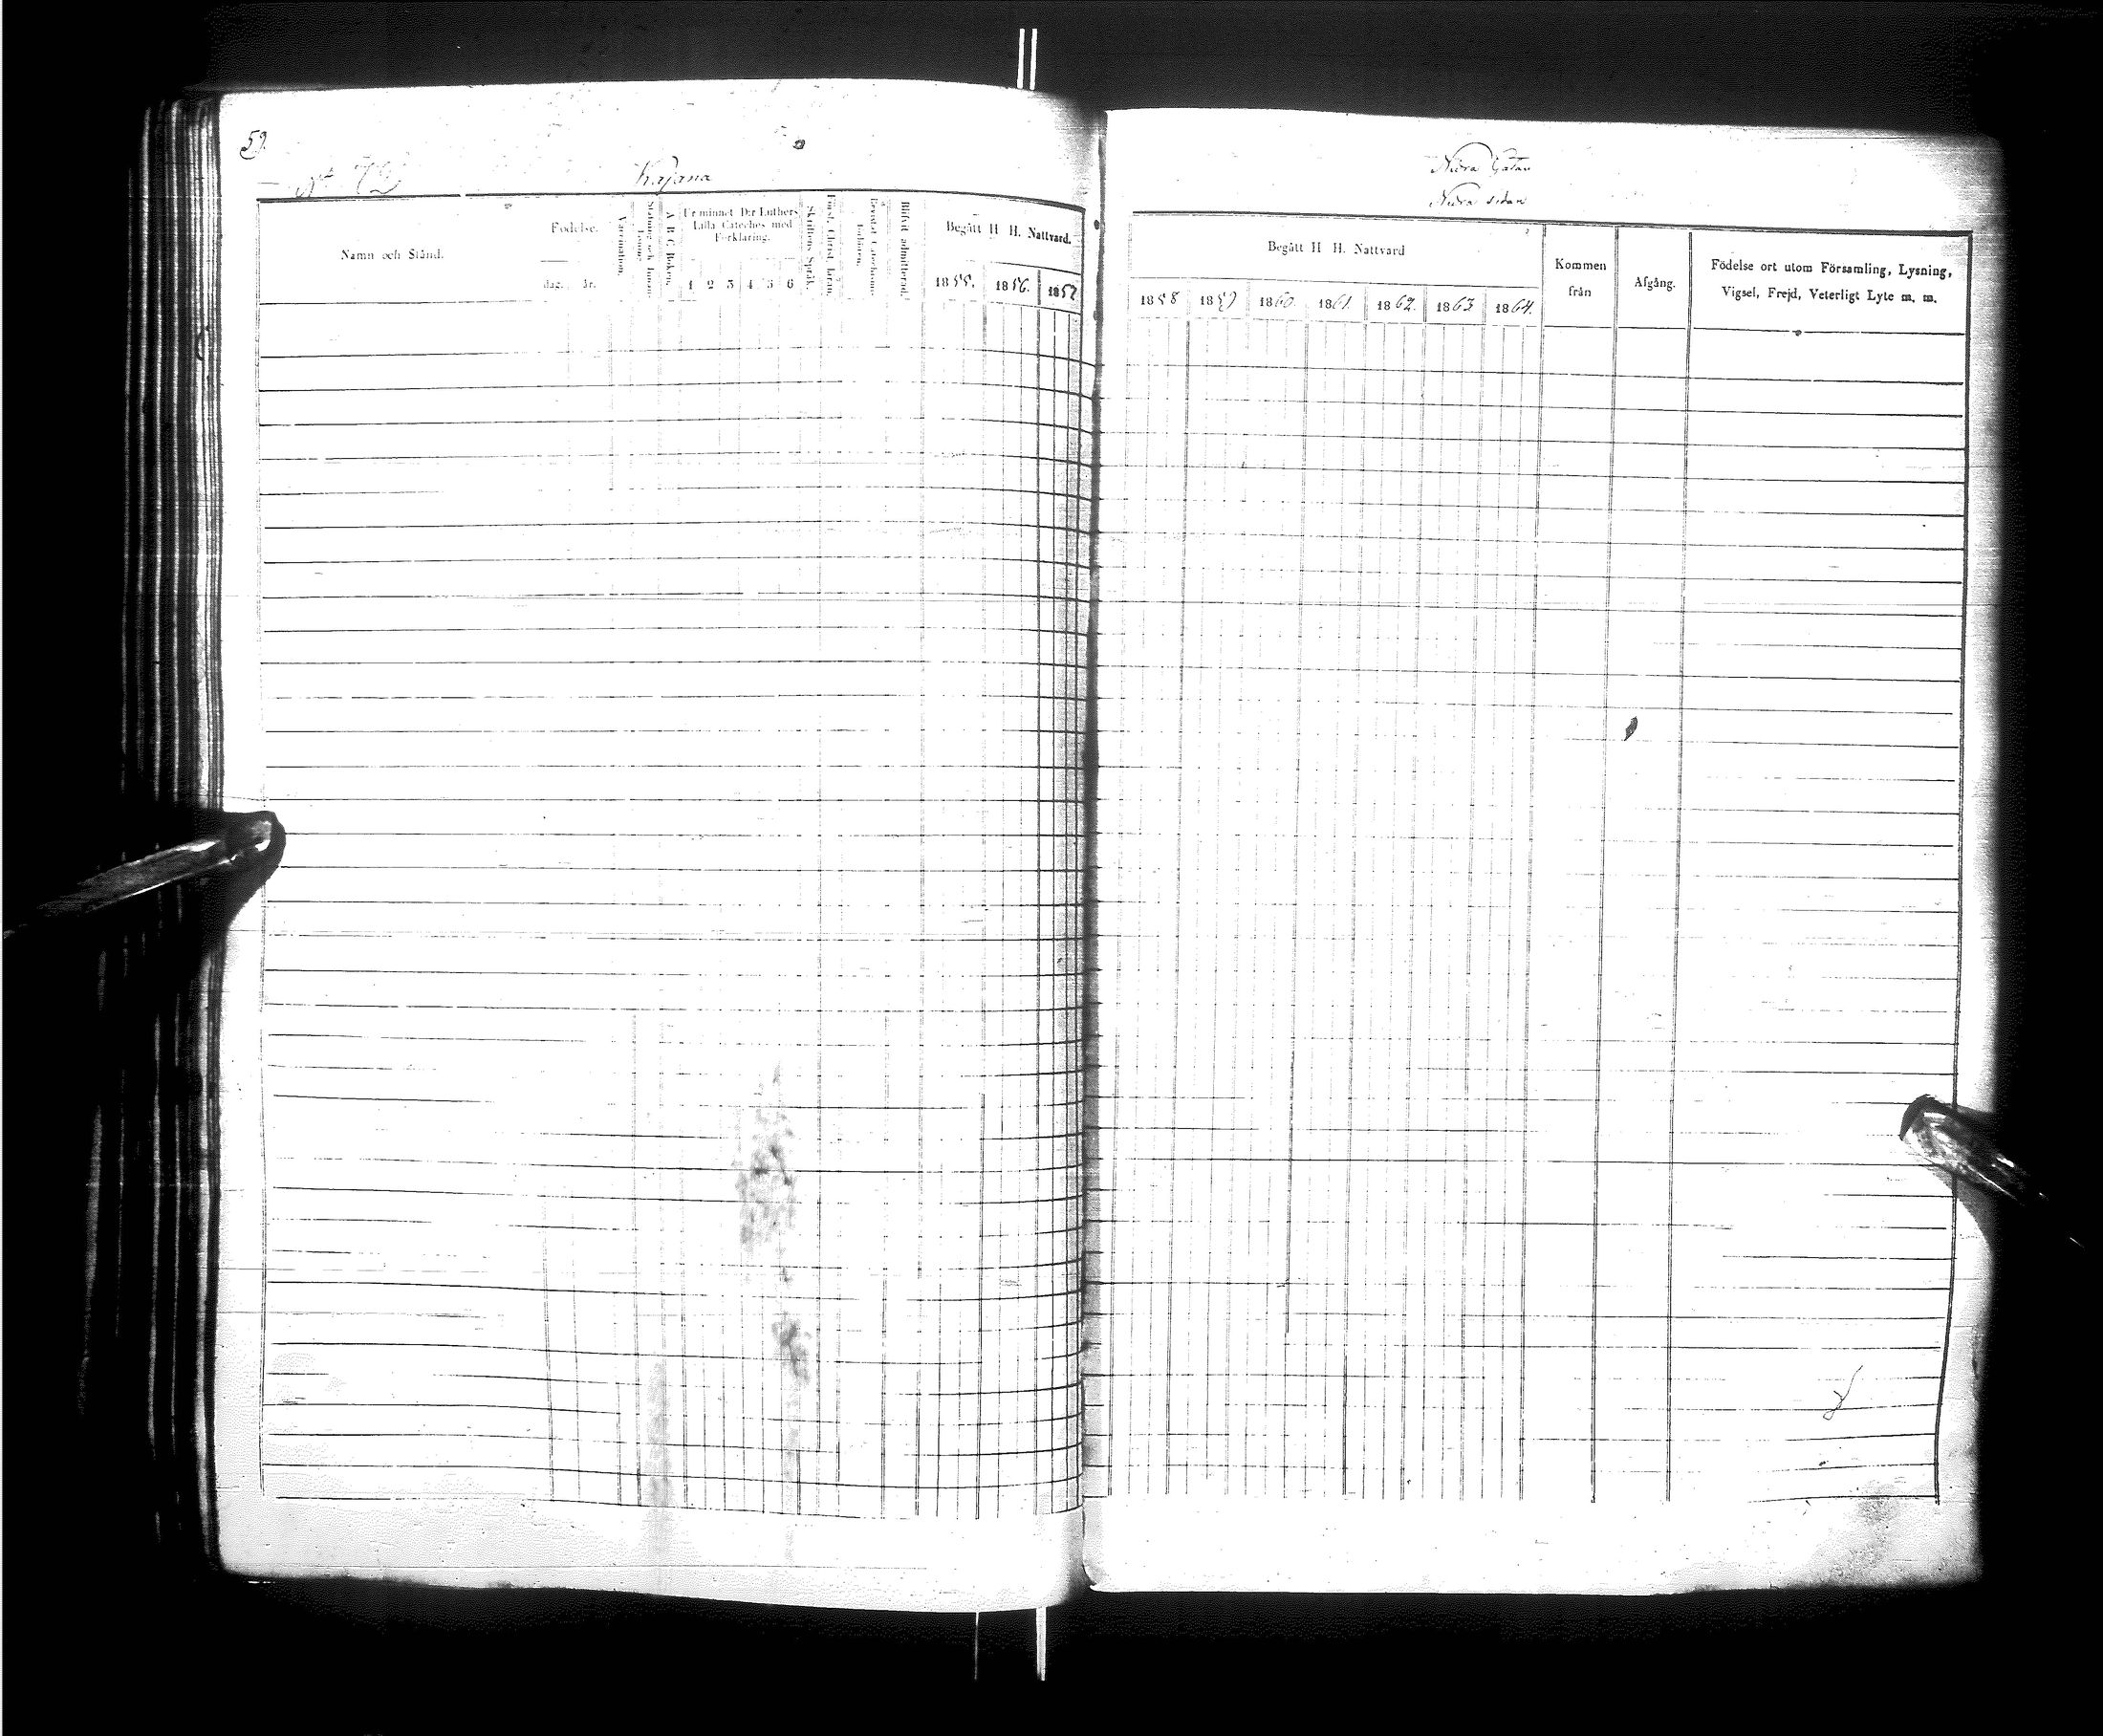 59.
No 72 Kajana
Namn och Stånd.
Födelse.
dag. år.
Vaccination.
A B C Boken.
Ur minnet D:r Luthers
Lilla Cateches med
Förklaring.
1 2 3 4 5 6
Skriftens Språk.
Blifvit admitterad.
Begått H H. Nattvard.
1855. 1856. 1857
Nedra Gatan
Nedra sidan
Begått H H. Nattvard
1858 1859 1860. 1861. 1862. 1863 1864.
Kommen
från
Afgång.
Födelse ort utom Församling, Lysning,
Vigsel, Frejd, Veterligt Lyte m. m.